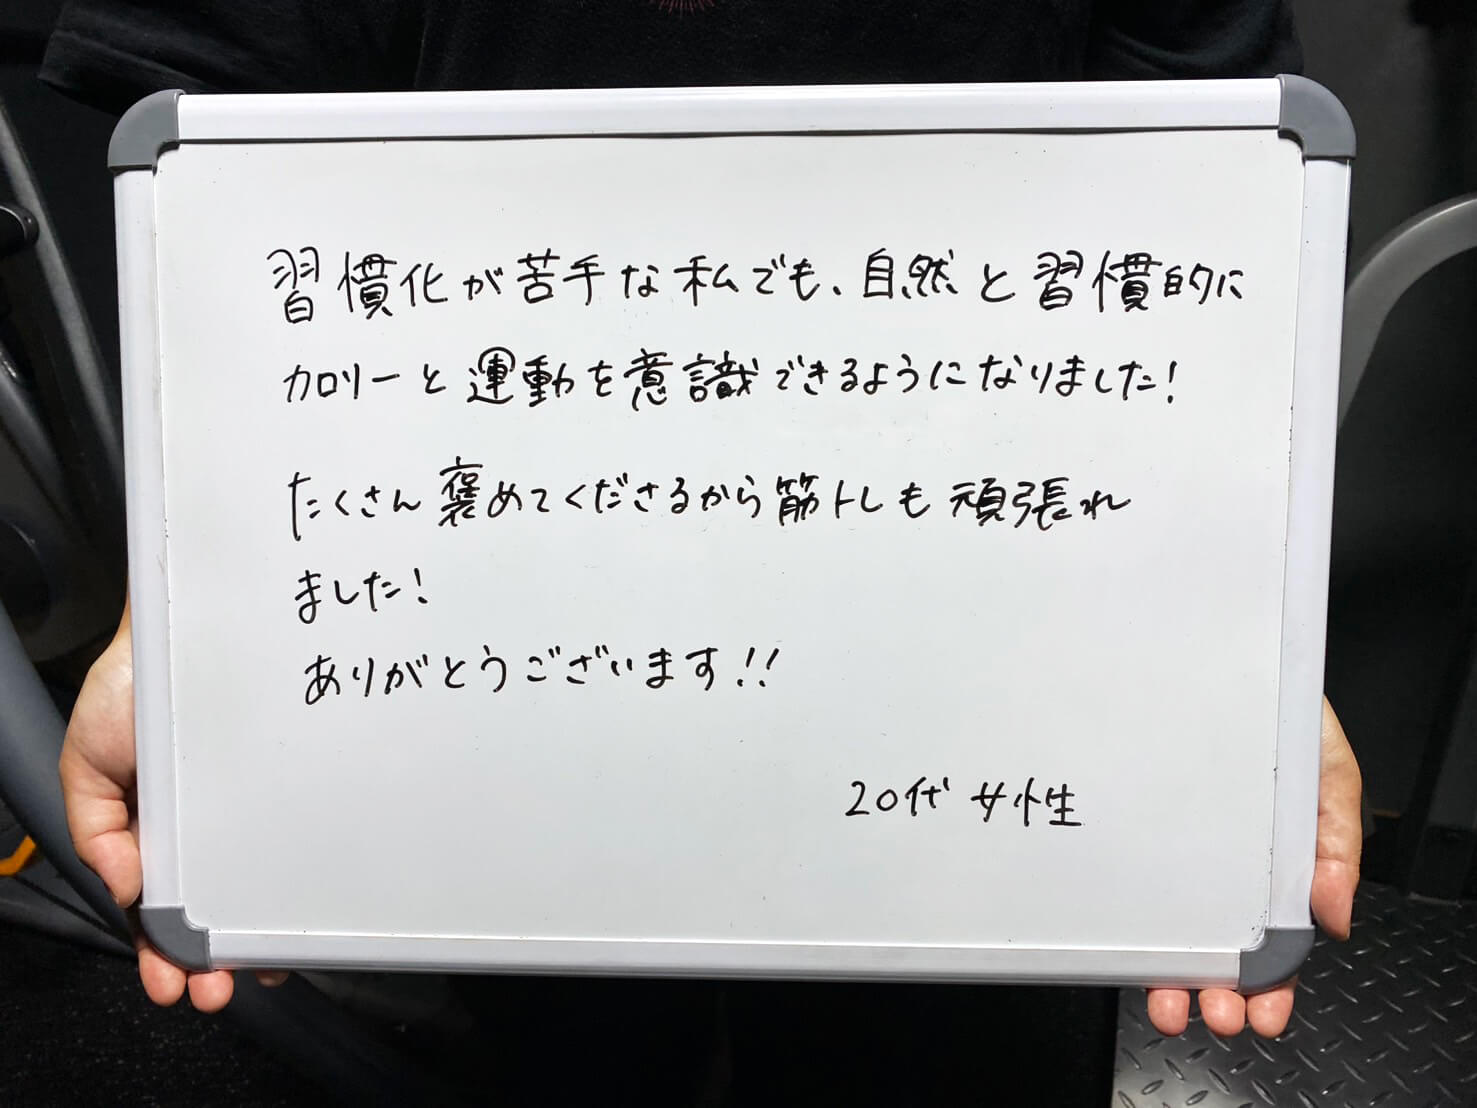 習慣化が苦手な私でも、自然と習慣的に
カロリーと運動を意識できるようになりました!
たくさん褒めてくださるから筋トレも頑張れ
ました!
ありがとうございます!!
20代 女性